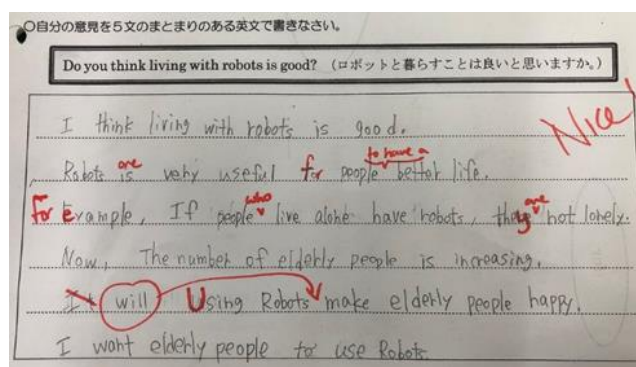 ○自分の意見を5文のまとまりのある英文で書きなさい。
Do you think living with robots is good? (ロボットと暮らすことは良いと思いますか。)
I think living with robots is good.
Nice!
are to have a
Robots is very useful for people better life.
who are
For Example, If people live alone have robots, they not lonely.
Now, The number of elderly people is increasing.
It will Using Robots make elderly people happy.
I want elderly people to use Robots.